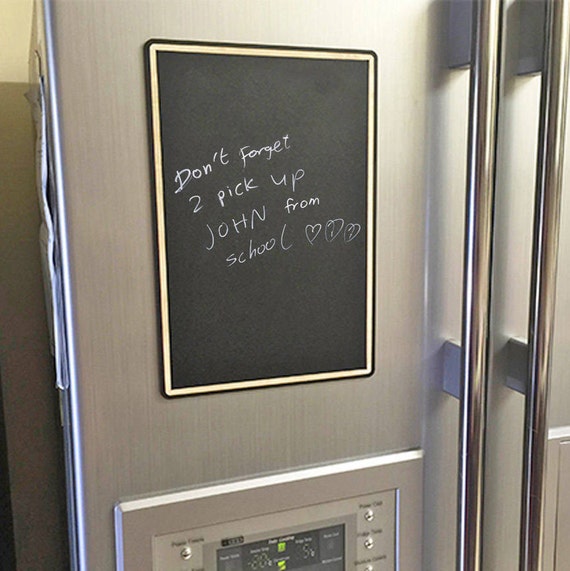 Don't Forget
2 pick up
JOHN from
school ♡♡♡
Power Freeze